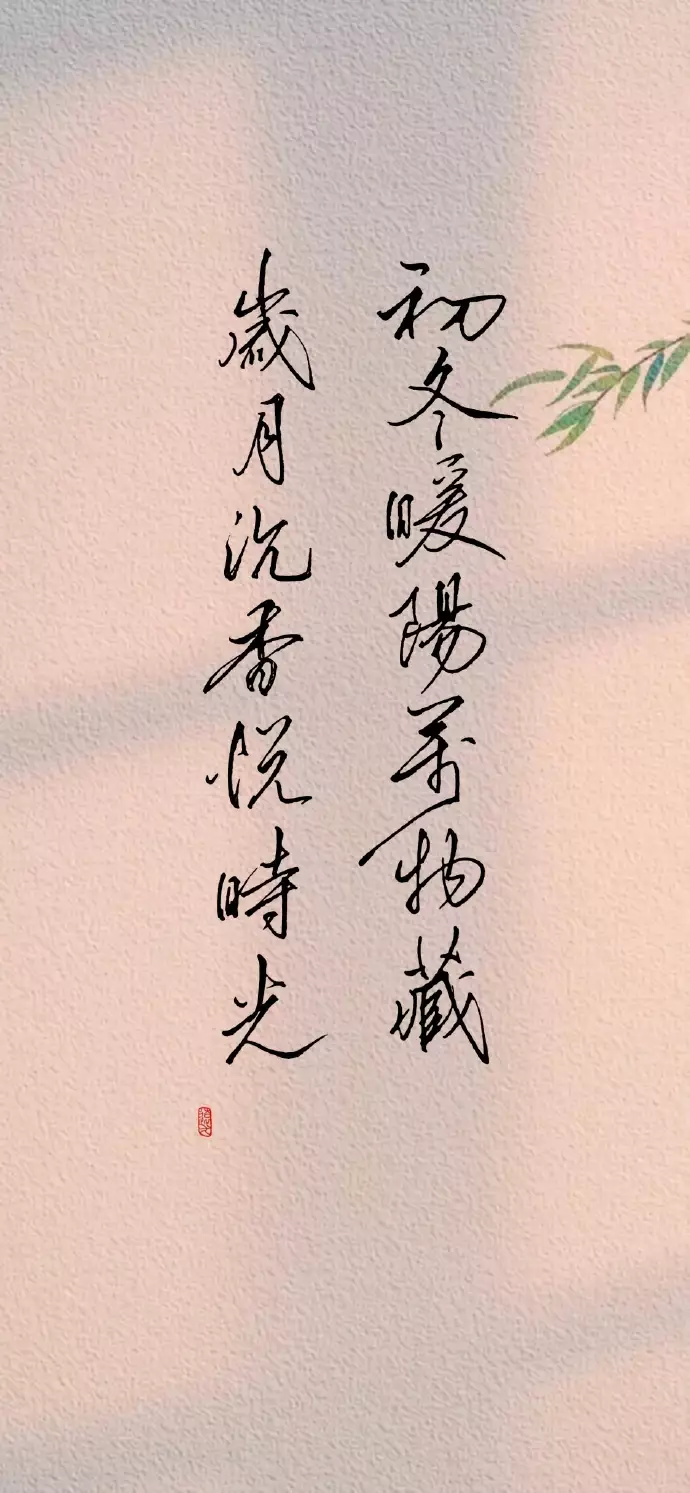 初冬暖陽萬物藏
歲月沉香悦時光